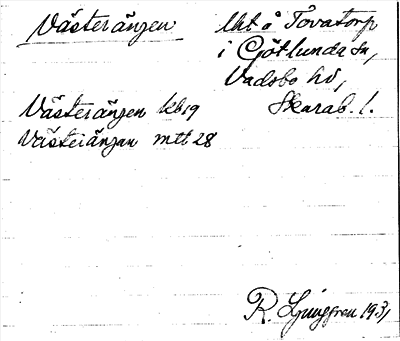 Västerängen
Uht å Tovatorp
i Götlunda sn,
Vadsbo hd,
Skarab. l.
Västerängen kb 19
Västerängan mtl 28
R. Ljunggren 1931